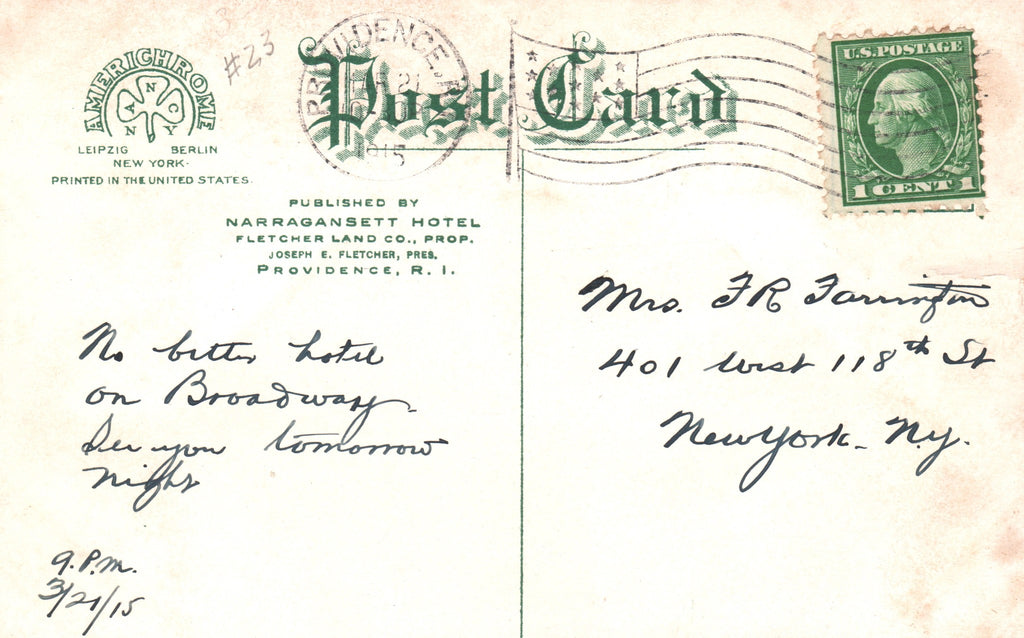 #23
AMERICHROME
A N C
N Y
LEIPZIG BERLIN
NEW YORK.
PRINTED IN THE UNITED STATES.
Post Card
PROVIDENCE, R.
21
1915
U.S. POSTAGE
1 CENT 1
PUBLISHED BY
NARRAGANSETT HOTEL
FLETCHER LAND CO., PROP.
JOSEPH E. FLETCHER, PRES.
PROVIDENCE, R. I.
No better hotel
on Broadway.
See you tomorrow
night
9. P.M.
3/21/15
Mrs. F R Farrington
401 West 118th St
New York. N.Y.